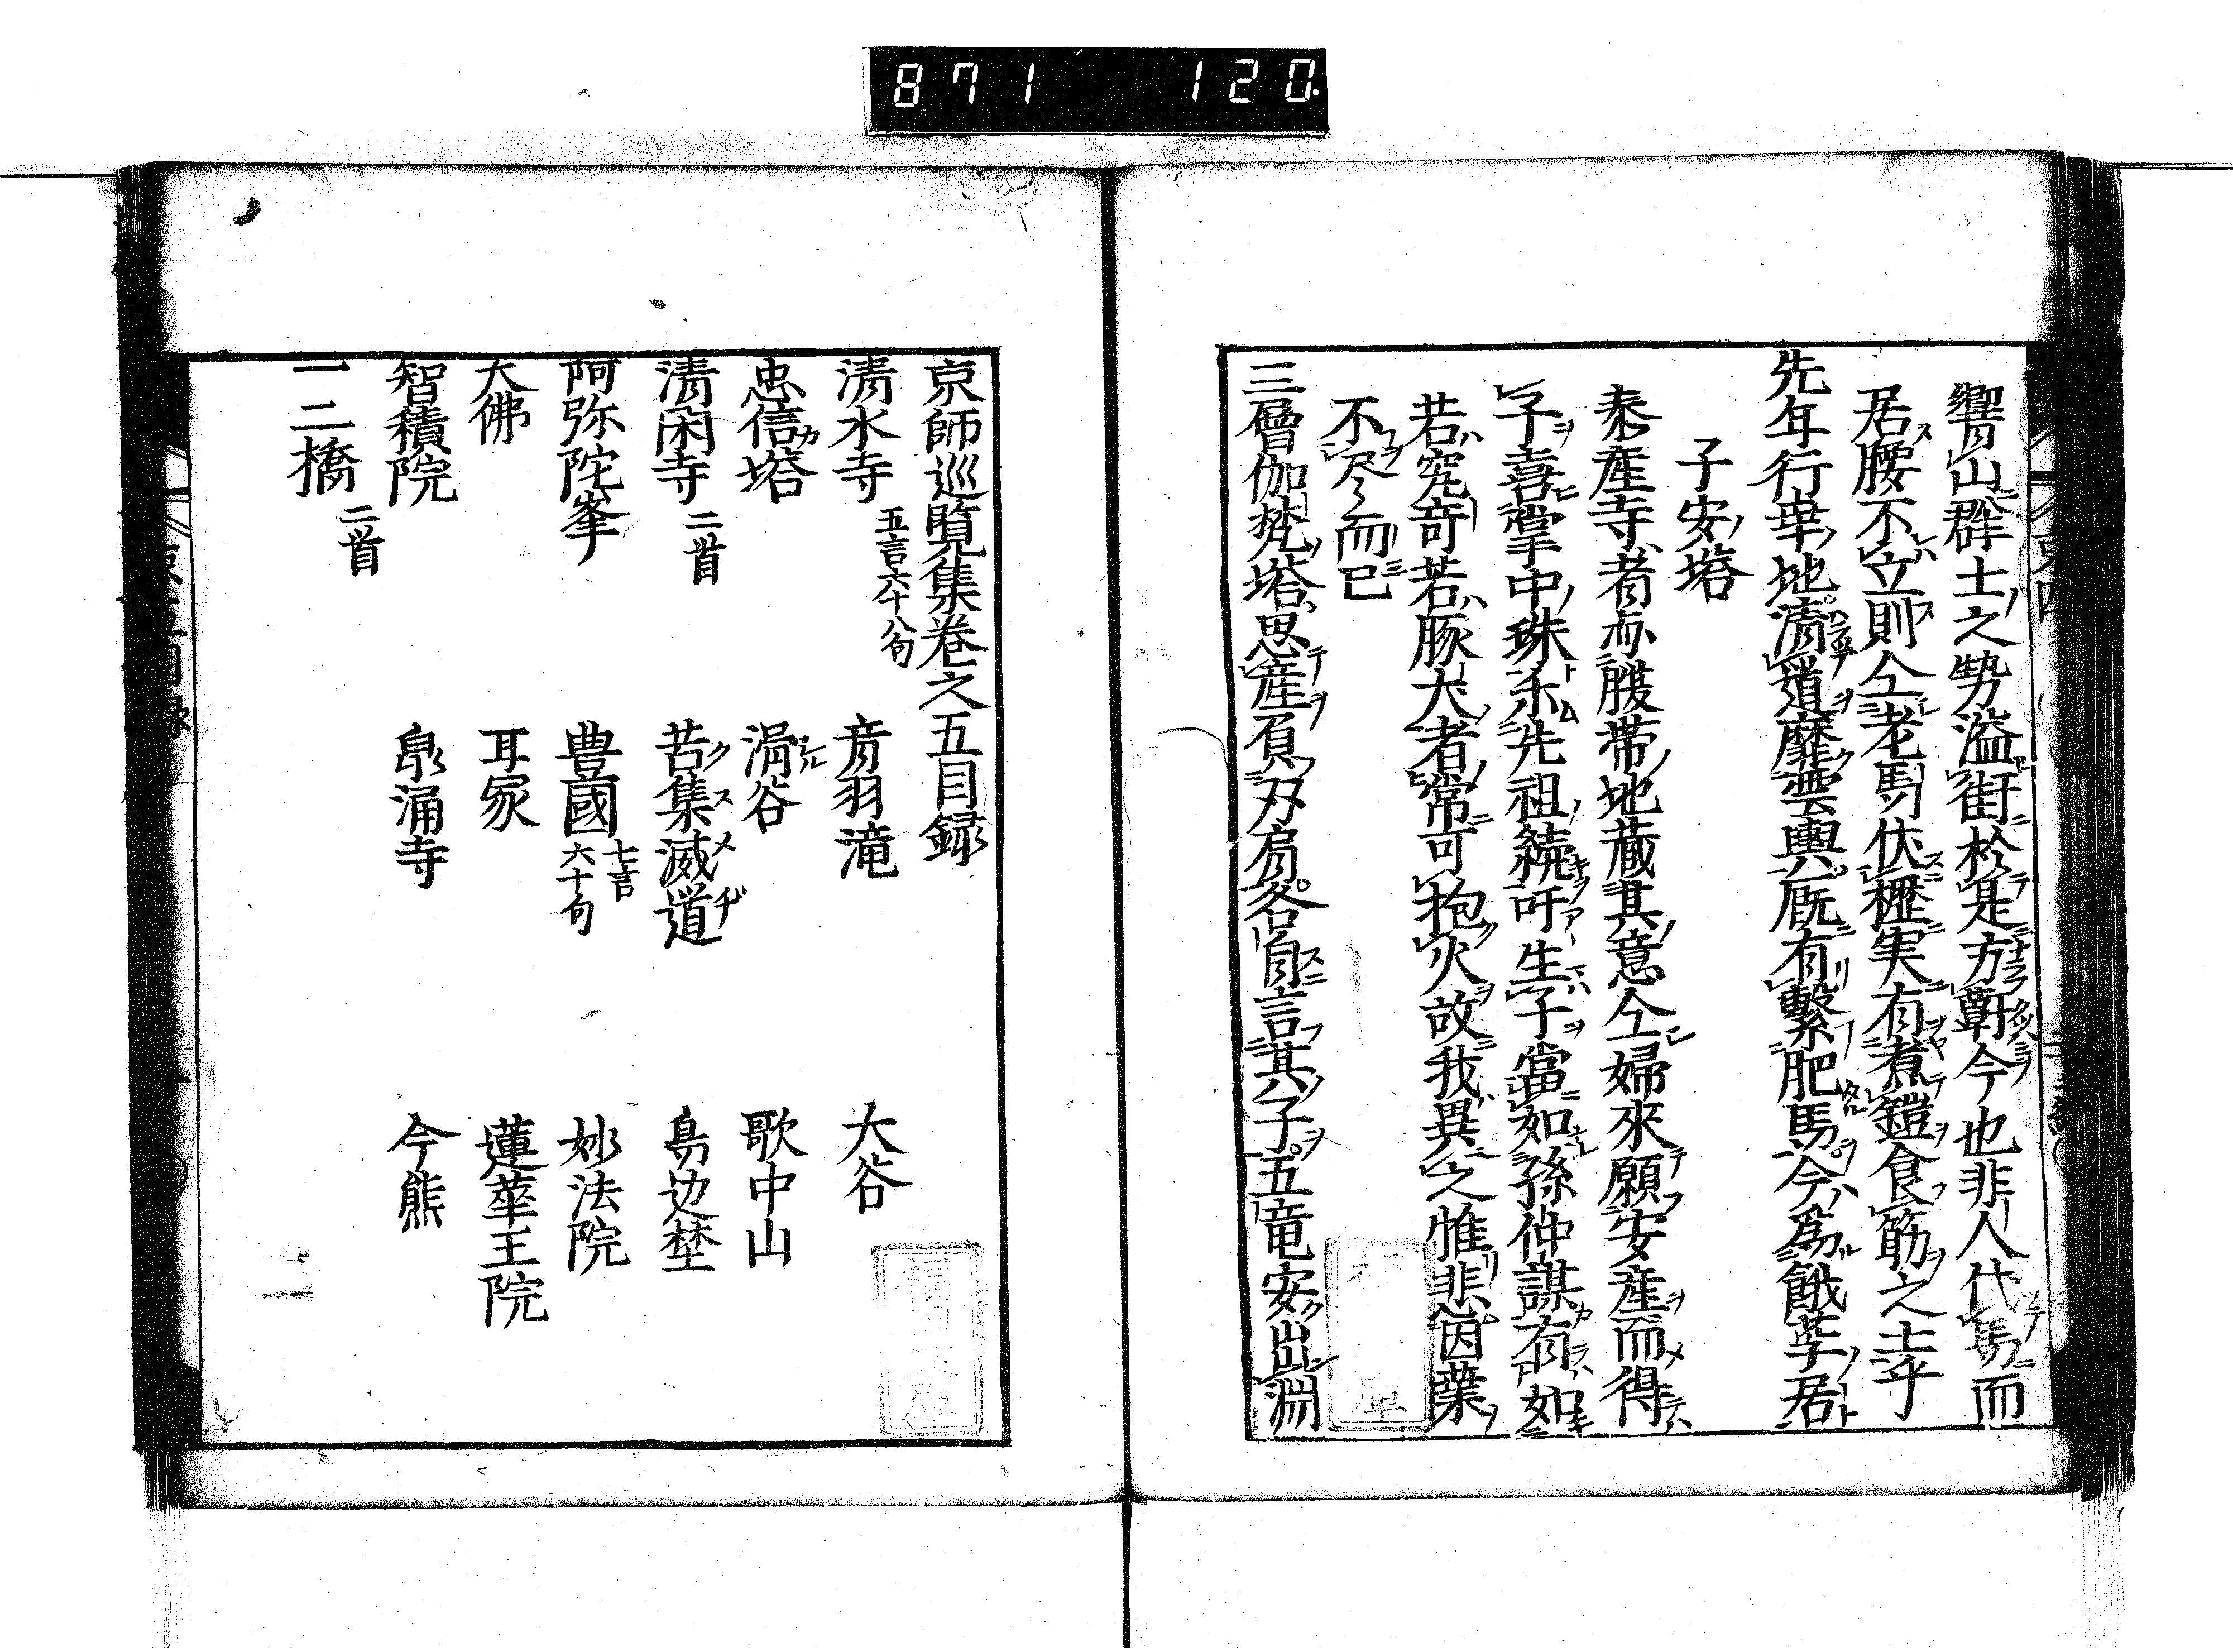 871 120
響山群士之勢溢街於是方蘄今也非人代馬而
居腰不立則仝老馬伏櫪実有煮鎧食筋之士乎
先年行幸地清道靡雲輿厩有繋肥馬今為餓莩居
子安塔
泰産寺者亦腰帯地蔵其意仝婦來願安産而得
子喜掌中珠禾先祖続吁生子當如孫仲謀有如
若究奇若豚犬者常可抱火故我異之惟悲因葉
不尽而已
三層伽梵塔思産負双肩各自言其子五竜安出淵
京師巡覧集巻之五目録
清水寺 五言六十八句 音羽滝 大谷
忠信塔 滑谷 歌中山
清閑寺 二首 苦集滅道 鳥辺埜
阿弥陀峯 豊國 七言六十句 妙法院
大佛 耳冢 蓮華王院
智積院 泉涌寺 今熊
一二橋 二首